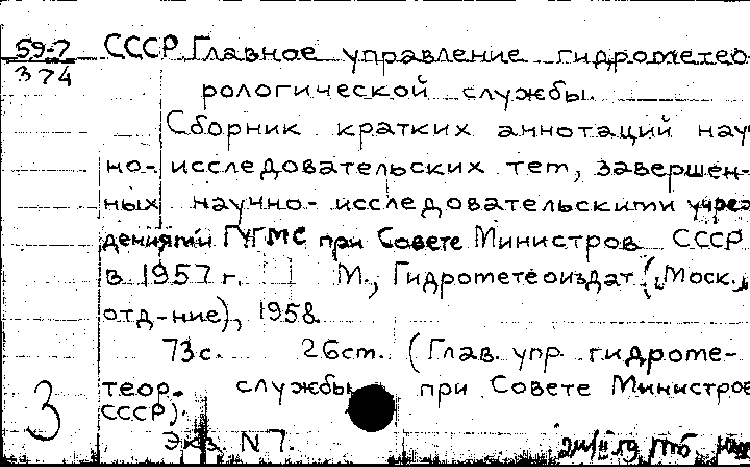 59-7 СССР. Главное управление гидрометео-
374
рологической службы.
Сборник кратких аннотаций науч-
но-исследовательских тет, завершен-
ных научно-исследовательскити учреж
дениями ГУГМС при Совете Министров СССР
в 1957 г. М., Гидрометеоиздат („Моск.
отд-ние), 1958.
73с. 26ст. (Глав. упр. гидроме-
теор. службы при Совете Министров
СССР).
3
Экз. N 7.